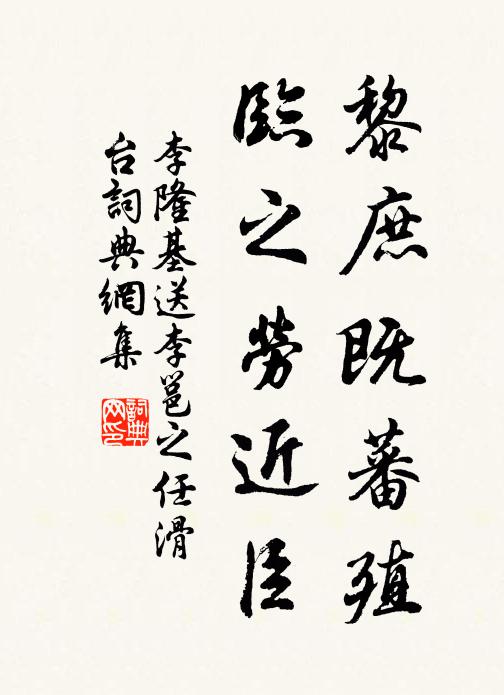 黎庶既蕃殖
臨之勞近臣
李隆基送李邕之任滑
台詞典網集
詞典
网印